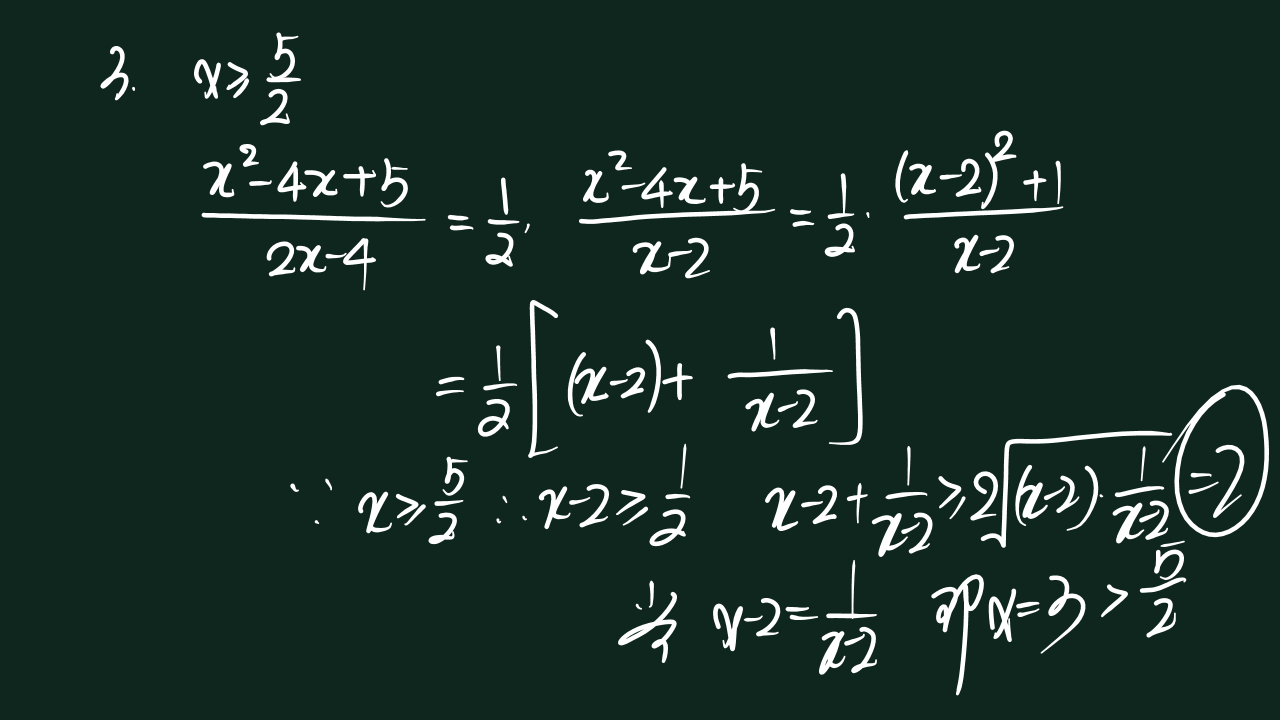 3. x≥5/2
(x²-4x+5)/(2x-4) = 1/2 · (x²-4x+5)/(x-2) = 1/2 · ((x-2)²+1)/(x-2)
= 1/2 [(x-2)+ 1/(x-2)]
∵ x≥5/2 ∴ x-2≥1/2 x-2+1/(x-2) ≥2√((x-2)·1/(x-2)) =2
当 x-2=1/(x-2) 即x=3>5/2